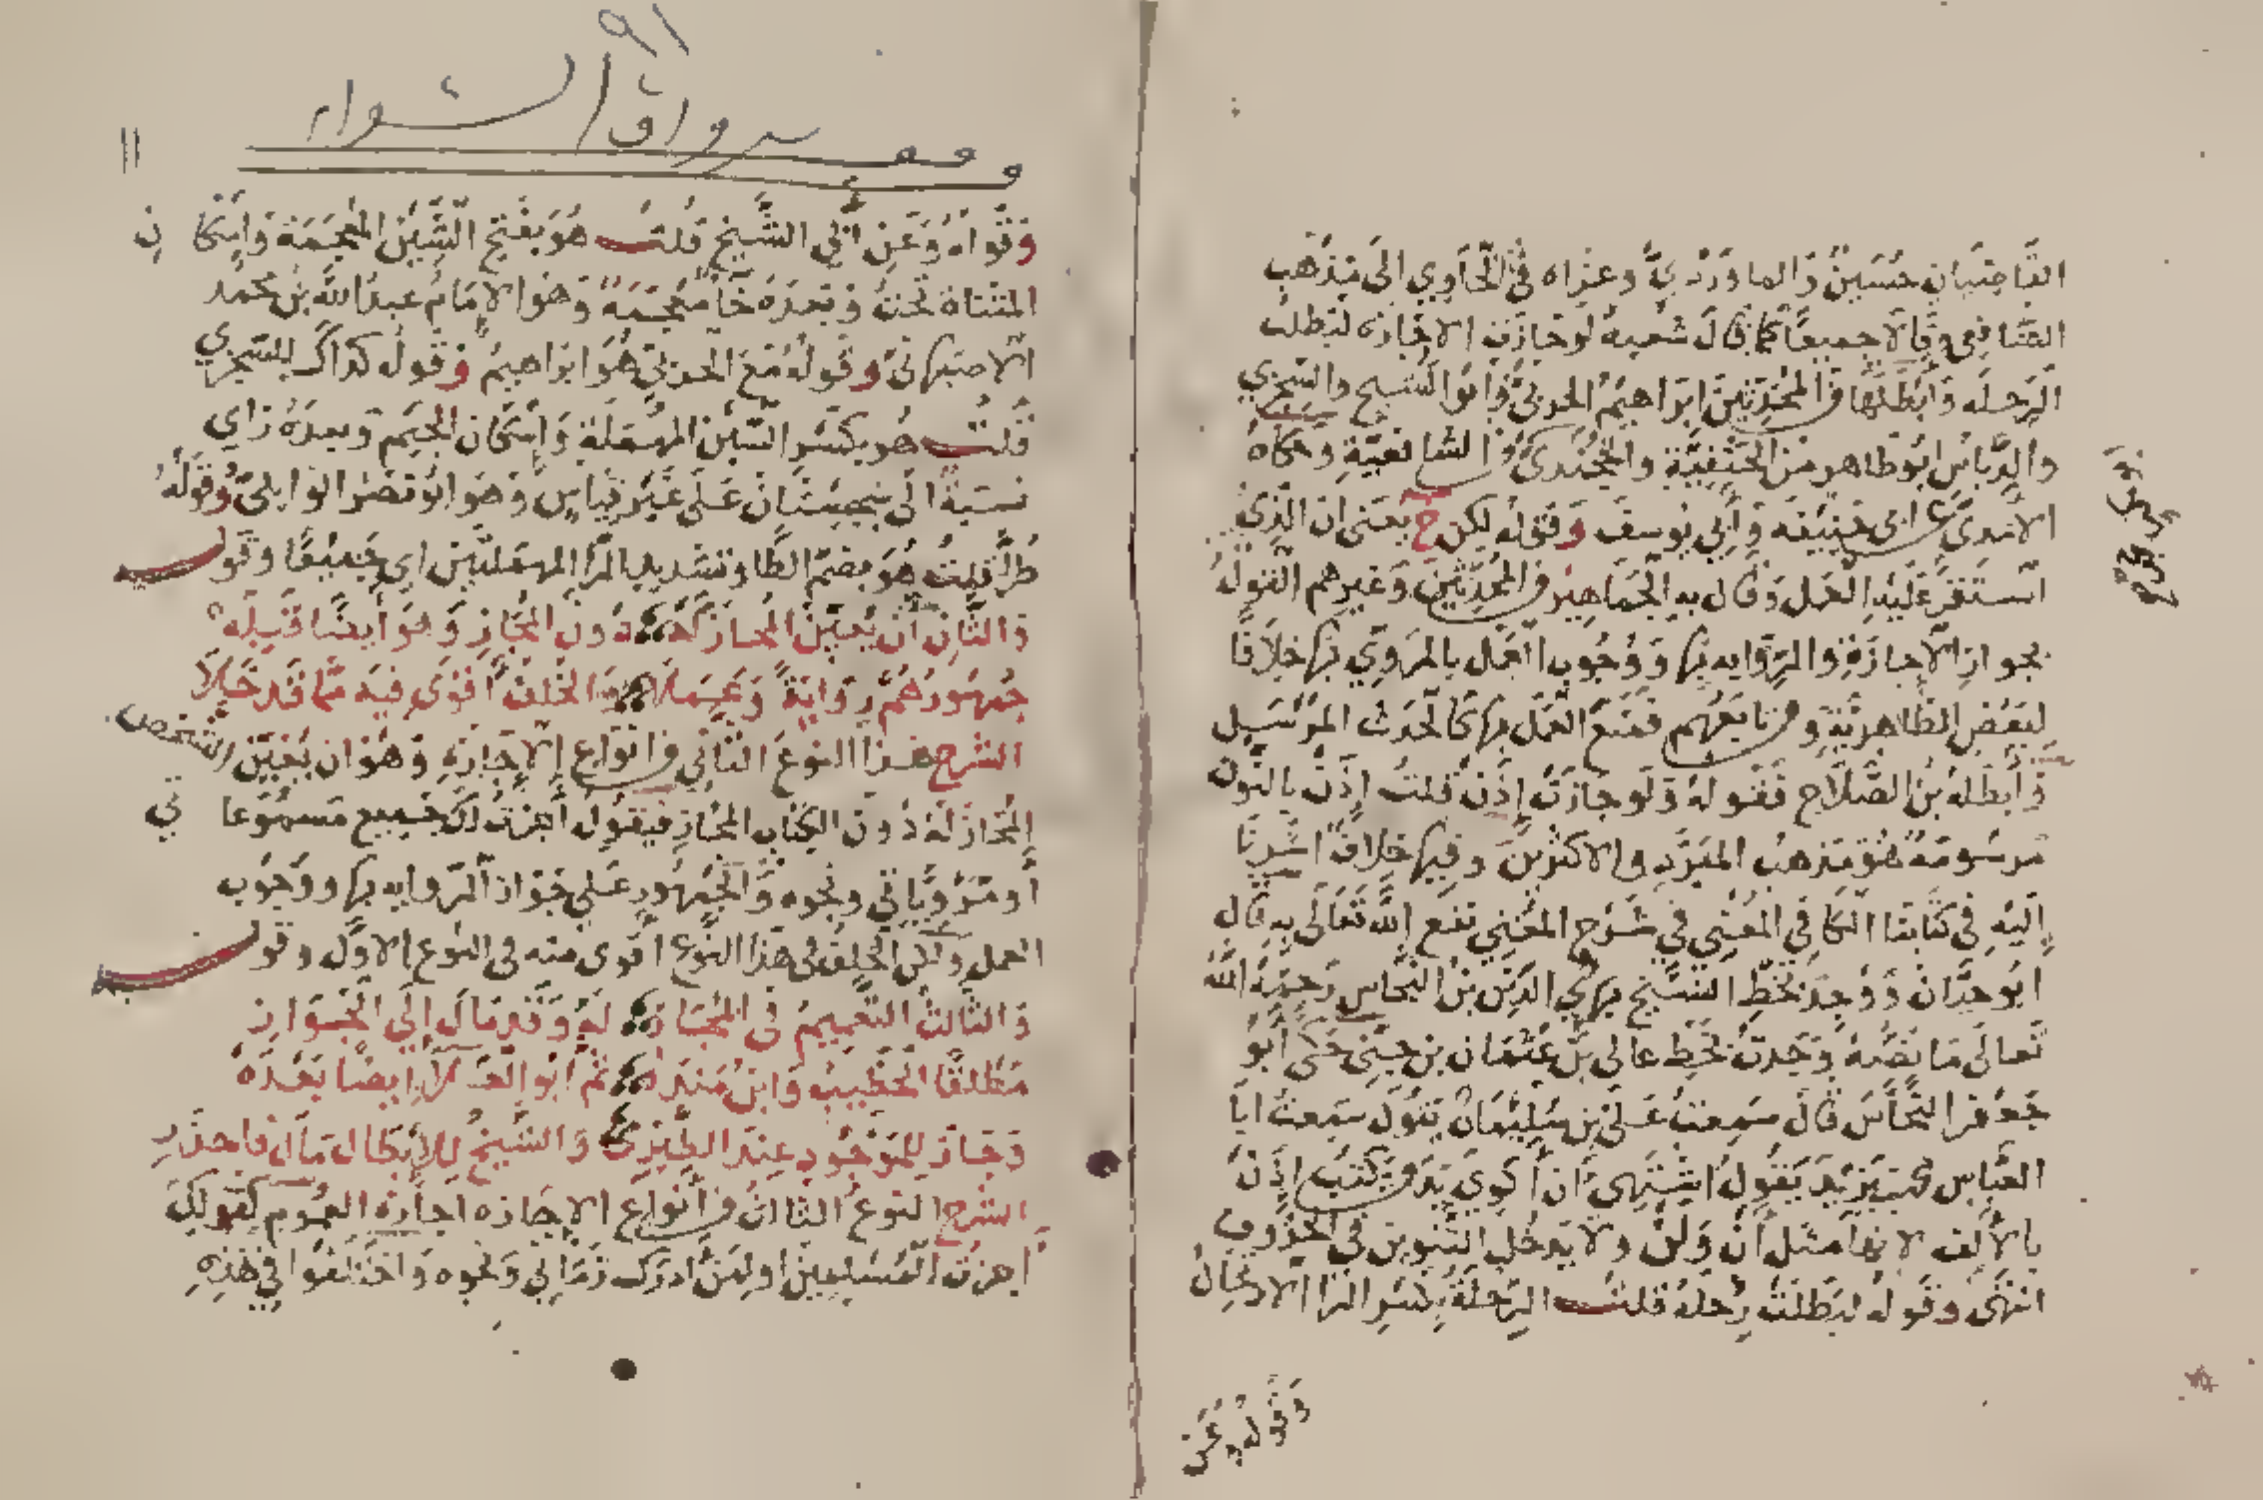 القاضيان حسين والماوردي وعزاه في الحاوي الى مذهب
الشافعي وقالا جميعا كما قال شعبة لو جازت الاجازه لبطلت
الرحله وابطلها من المحدثين ابراهيم الحربي وابو الشيخ والسجزي
والدباس ابو طاهر من الحنفية والخجندي من الشافعية وحكاه
الآمدي عن ابي حنيفه وابي يوسف وقوله لكن ح يعني ان الذي
استقر عليه العمل وقال به الجماهير من المحدثين وغيرهم القوله
بجواز الاجازة والروايه بها ووجوب العمل بالمروي بها خلافا
لبعض الظاهرية ومن تابعهم فمنع العمل بها كالحديث المرسل
وأبطله بن الصلاح فقوله ولو جازت إذن قلت إذن بالنون
مرسومة هو مذهب المبرد والاكثرين وفيها خلاف اشرنا
إليه في كتابنا الكافي المغني في شرح المغني نفع الله تعالى به قال
ابو حيان ووجد بخط الشيخ بهي الدين بن النحاس رحمه الله
تعالى ما نصه وجدت بخط عالي بن عثمان بن جني حكى ابو
جعفر النحاس قال سمعت علي بن سليمان يقول سمعت ابا
العباس محمد بن يزيد يقول اشتهي ان أكوي يد من يكتب إذن
بالألف لانها مثل ان ولن ولا يدخل التنوين في الحروف
انتهى وقوله لبطلت رحله قلت الرحلة بكسر الرا الارتحال
وقوله وعن
٩١
وقف رواق الشوام
وقواه وعن أبي الشيخ قلت هو بفتح الشين المعجمة واسكان
المثناة تحت وبعده خا معجمة وهو الامام عبد الله بن محمد
الاصبهاني وقوله مع الحربي هو ابراهيم وقوله كذاك للسجزي
قلت هو بكسر السين المهملة وإسكان الجيم وبعده زاي
نسبة الى سجستان على غير قياس وهو ابو نصر الوايلي وقوله
طرا قلت هو بضم الطا وتشديد الرا المهملتين اي جميعا وقو
والثان أن يعين المجاز له دون المجاز وهو أيضا قبله
جمهورهم رواية وعملا والخلف أقوى فيه مما قد خلا
الشرح هذا النوع الثاني من انواع الاجازه وهو ان يعين الشخص
المجاز له دون الكتاب المجاز فيقول أجزت لك جميع مسموعاتي
أو مروياتي ونحوه والجمهور على جواز الروايه بها ووجوب
العمل ولكن الخلف في هذا النوع أقوى منه في النوع الاول وقو
والثالث التعميم في المجاز له وقد مال إلى الجواز
مطلقا الخطيب وابن منده ثم ابو العلا ايضا بعده
وجاز للموجود عند الطبري والشيخ للابطال مال فاحذر
الشرح النوع الثالث من أنواع الاجازه اجازة العموم كقولك
أجزت للمسلمين او لمن أدرك زماني ونحوه واختلفوا في هذه